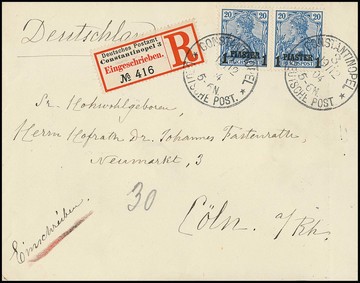 Deutschland
Deutsches Postamt
Constantinopel 3
Eingeschrieben.
№ 416
R
20 20
1 PIASTER 1 PIASTER
CONSTANTINOPEL
DEUTSCHE POST.
CONSTANTINOPEL
DEUTSCHE POST.
Sr. Hochwohlgeboren,
Herrn Hofrath Dr. Johannes Fastenrath
Neumarkt 3
30
Cöln a/Rh.
Einschreiben.